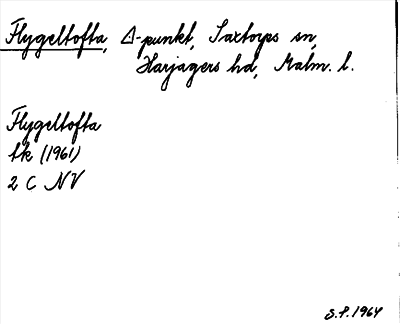 Flygeltofta, △-punkt, Saxtorps sn,
Harjagers hd, Malm. l.
Flygeltofta
tk (1961)
2 C NV
S.P. 1964